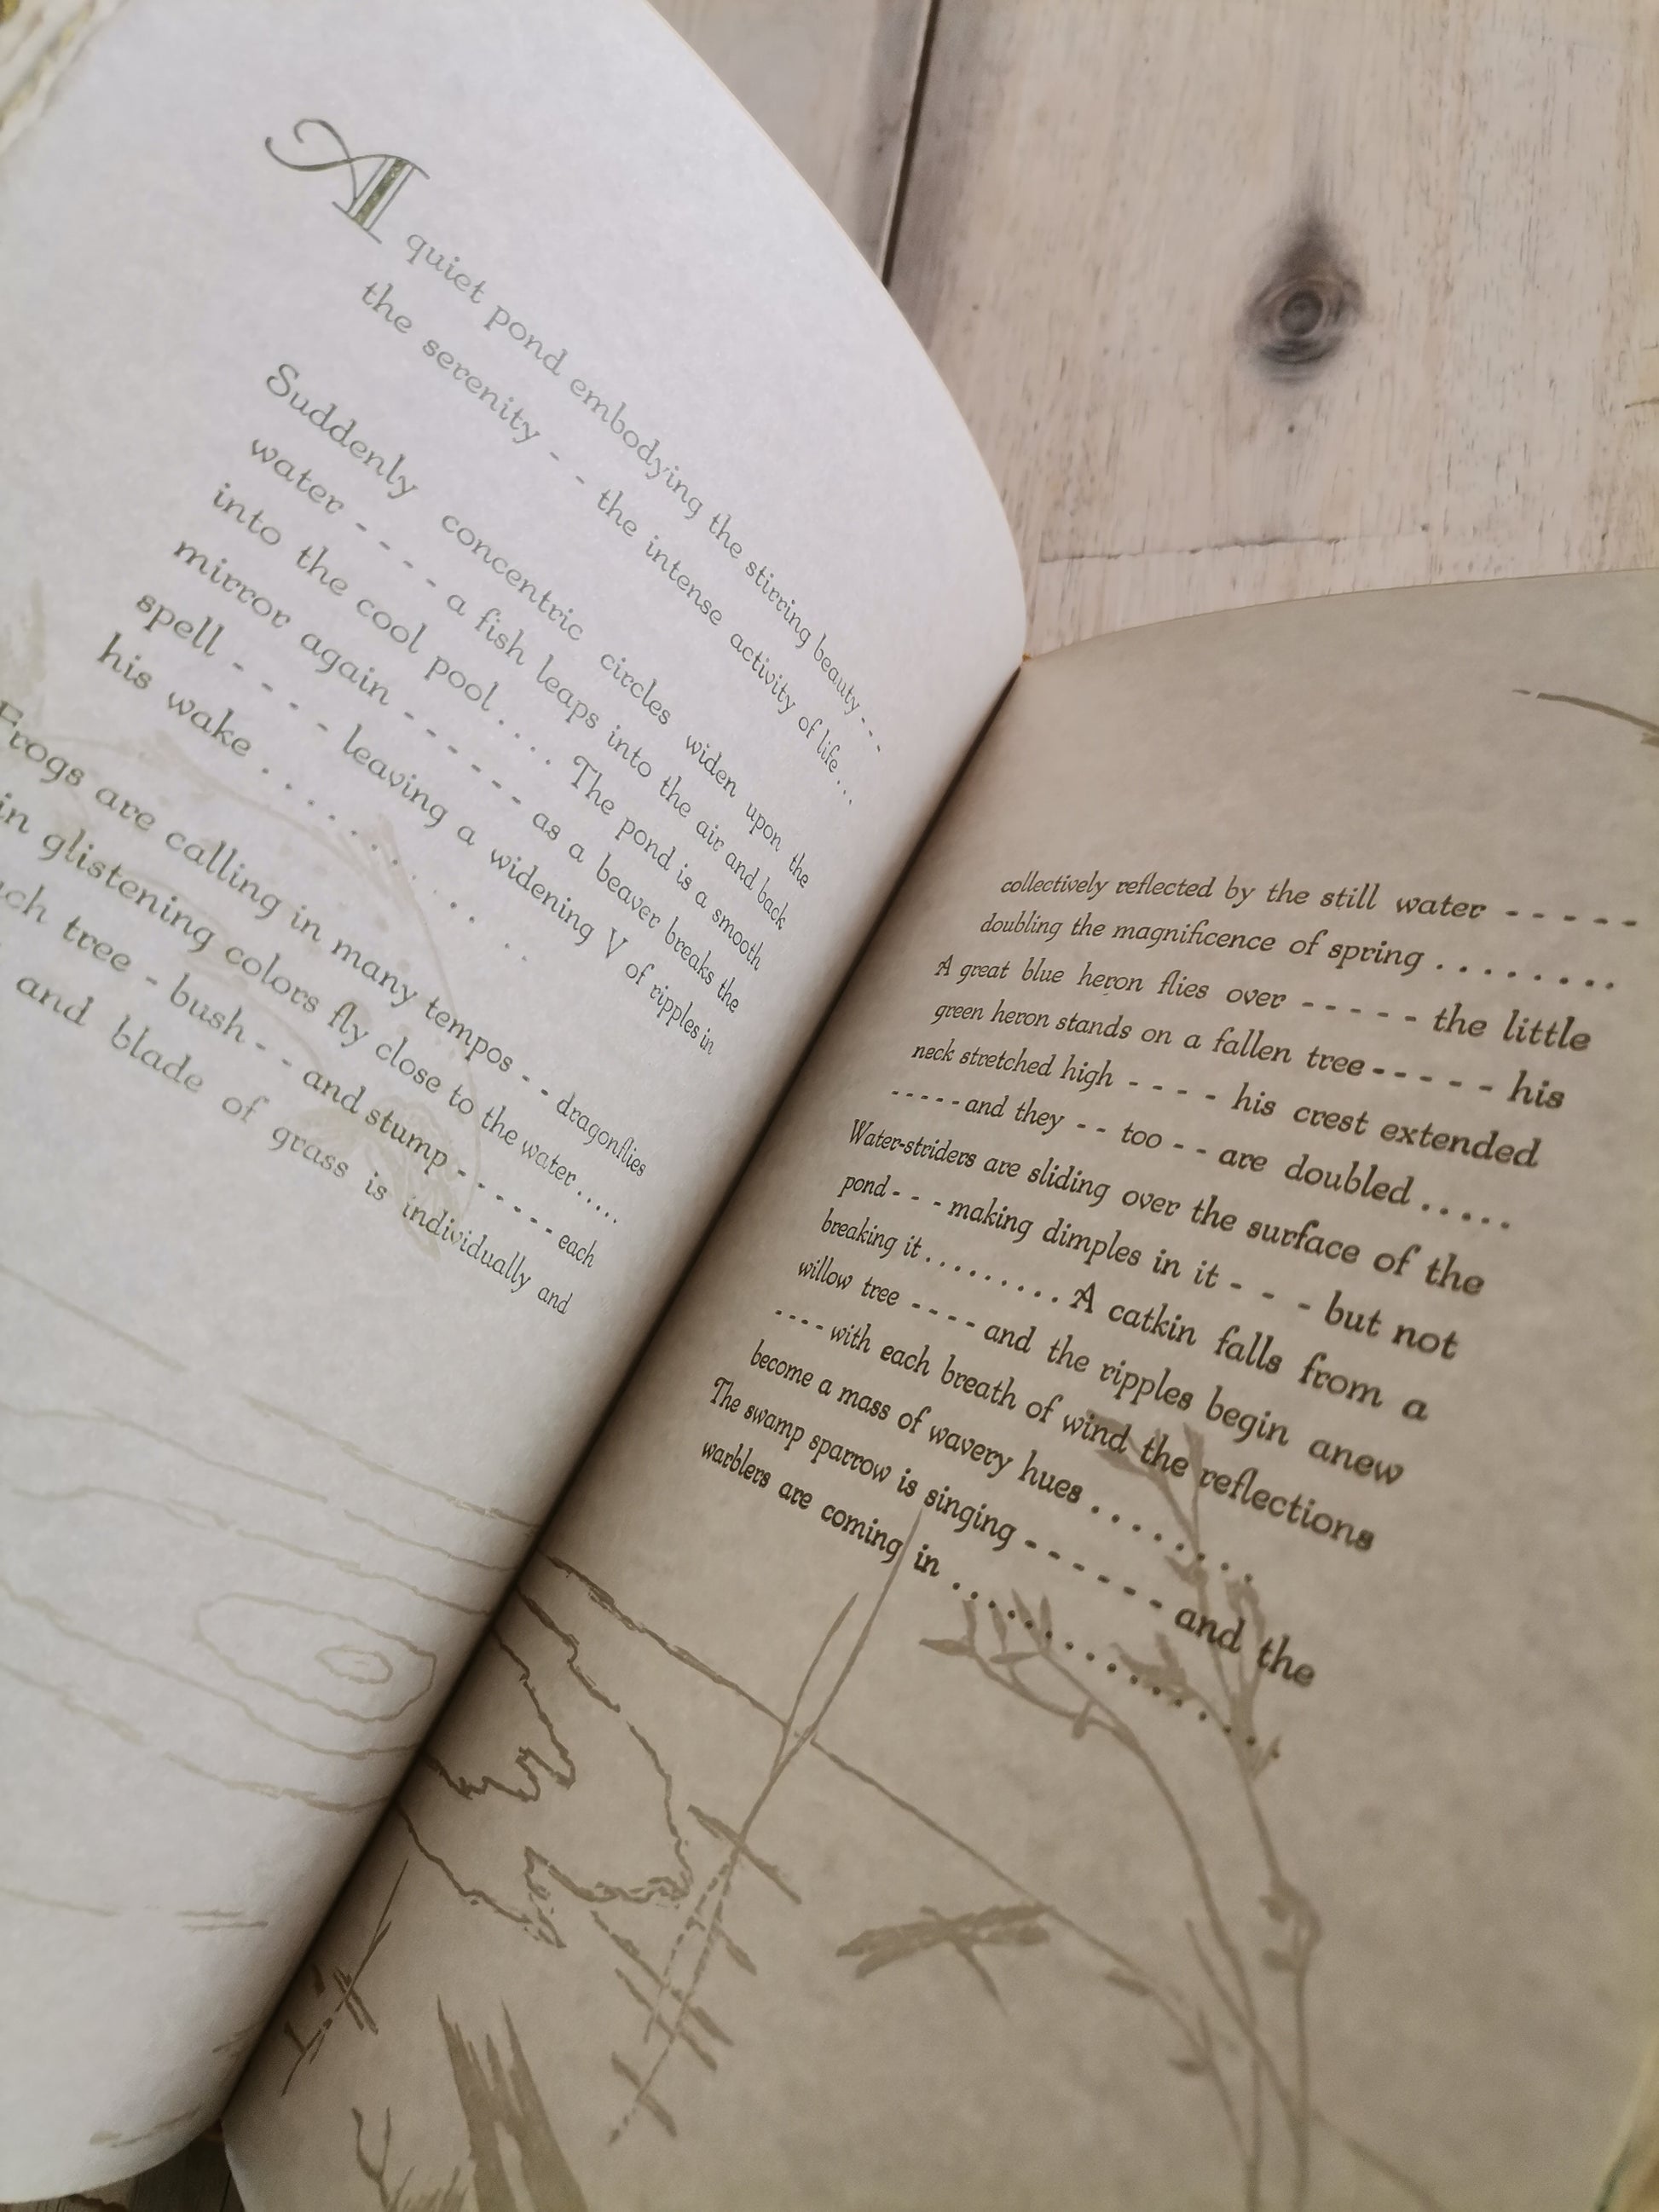 A quiet pond embodying the stirring beauty - - -
the serenity - - the intense activity of life ...
Suddenly concentric circles widen upon the
water - - - - a fish leaps into the air and back
into the cool pool . . . . The pond is a smooth
mirror again - - - - - - as a beaver breaks the
spell - - - - - leaving a widening V of ripples in
his wake . . . . . . . . . . . .
Frogs are calling in many tempos - - dragonflies
in glistening colors fly close to the water . . . . .
tree - bush - - and stump - - - - - - each
and blade of grass is individually and
collectively reflected by the still water - - - - -
doubling the magnificence of spring . . . . . . . .
A great blue heron flies over - - - - - the little
green heron stands on a fallen tree - - - - - his
neck stretched high - - - - his crest extended
- - - - - and they - - too - - are doubled . . . . .
Water-striders are sliding over the surface of the
pond - - - making dimples in it - - - but not
breaking it . . . . . . . . . A catkin falls from a
willow tree - - - - and the ripples begin anew
- - - - with each breath of wind the reflections
become a mass of wavery hues . . . . . . . . .
The swamp sparrow is singing - - - - - - - and the
warblers are coming in . . . . . . . . . . . . . . . . .